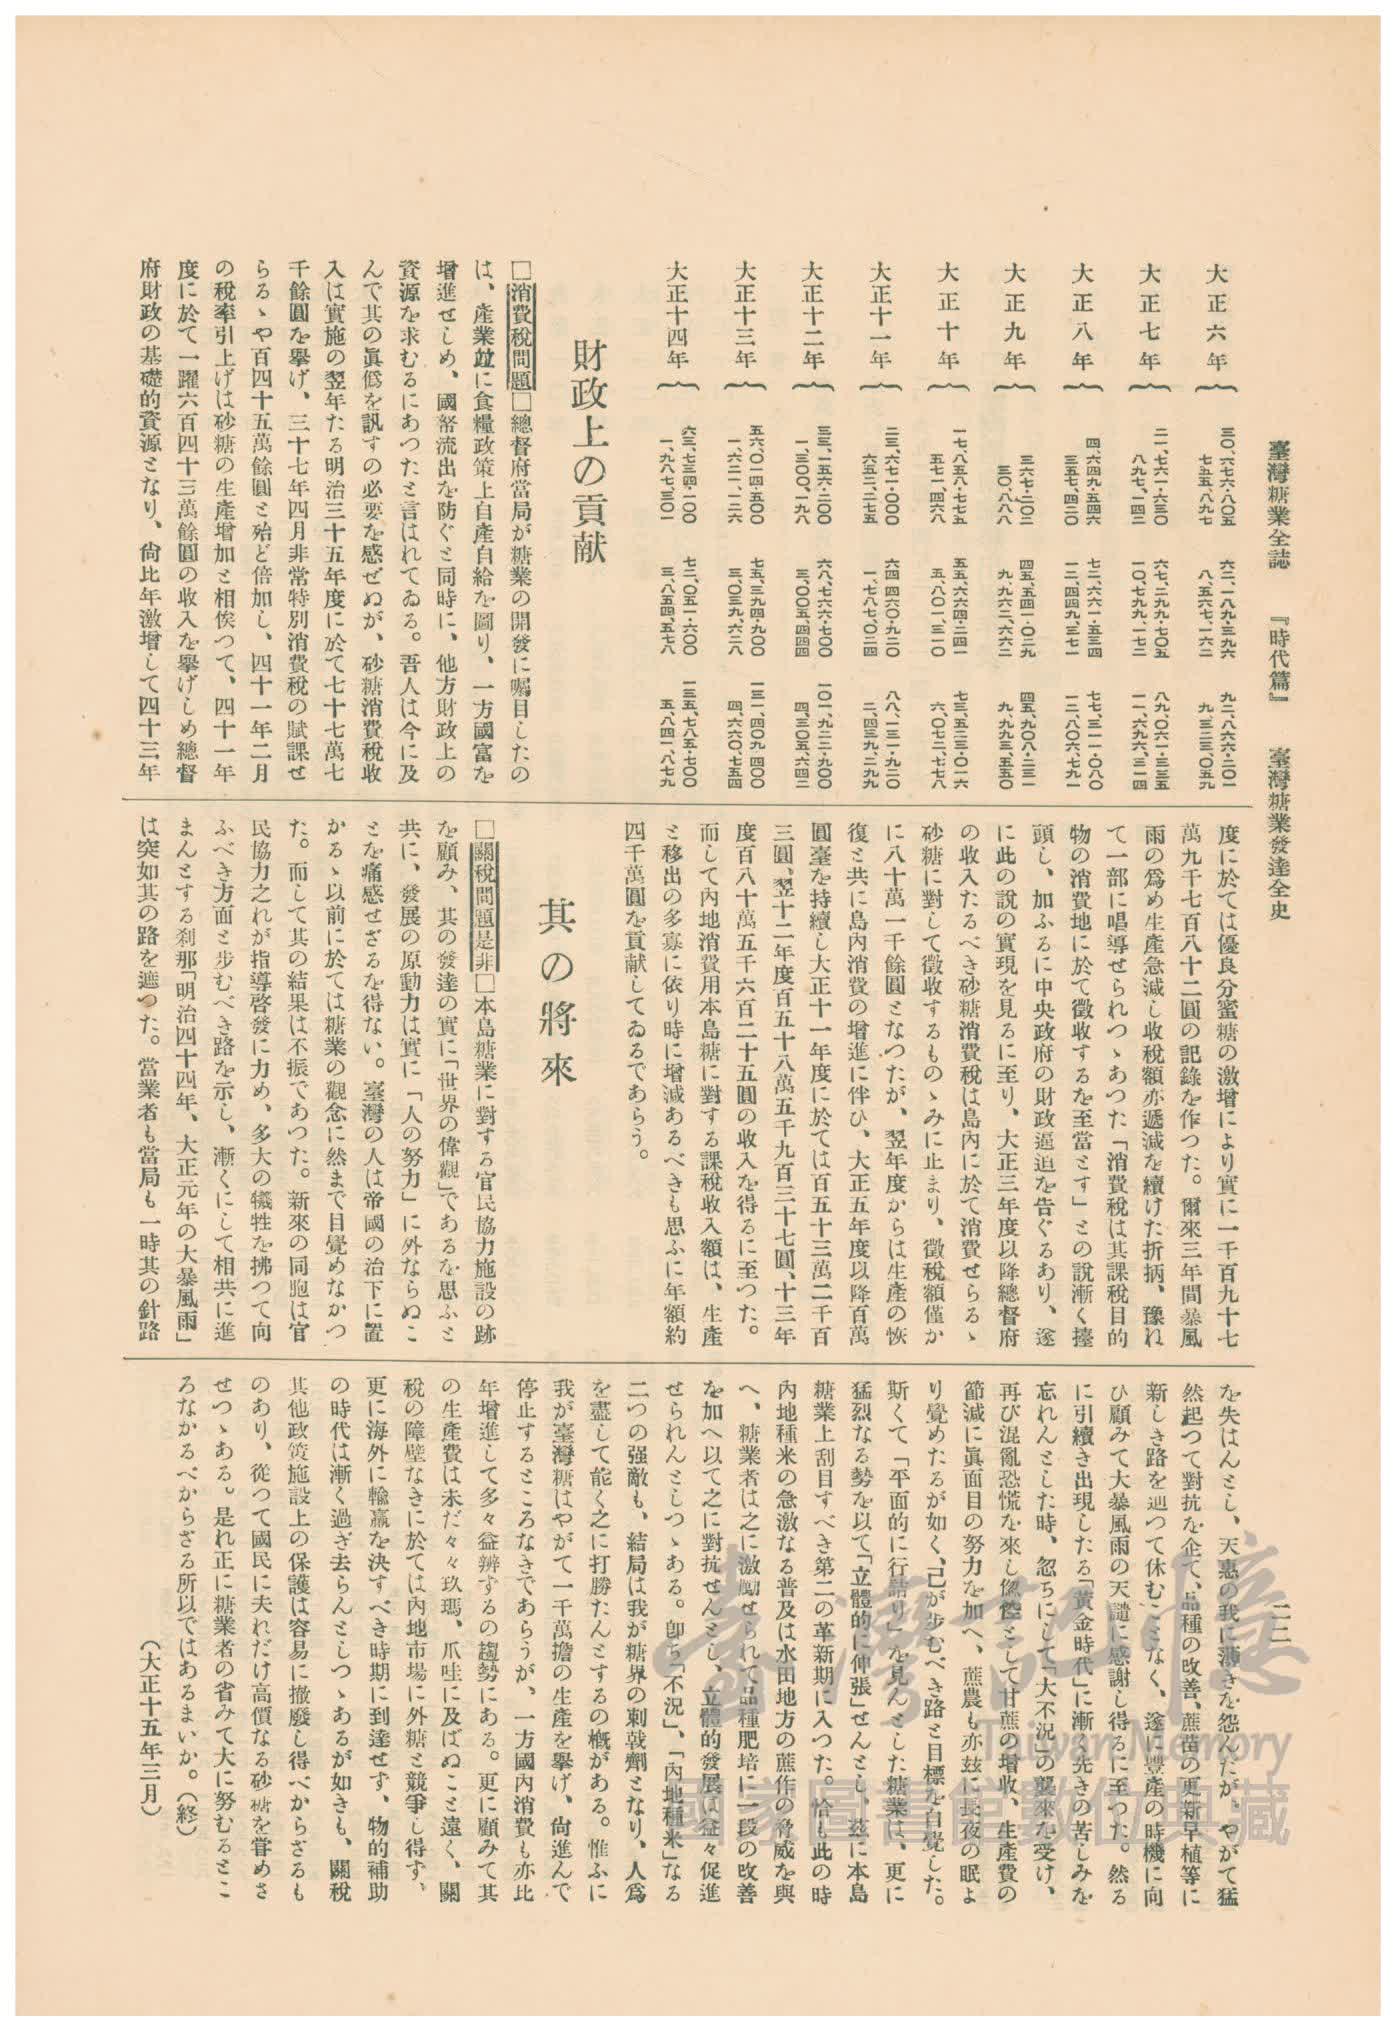 臺灣糖業全誌　『時代篇』　臺灣糖業發達全史
二二
大正六年
三〇、六七六・八〇五　六二、一八九・三九六　九二、八六六・二〇一
七五五、八九七　八、五六七、一六二　九、三二三、〇五九
大正七年
二一、七六一・六三〇　六七、二九九・七〇五　八九、〇六一・三三五
八九七、一四二　一〇、七九九、一七二　一一、六九六、三一四
大正八年
四、六四九・五四六　七二、六六一・五三四　七七、三一一・〇八〇
三五七、四二〇　一二、四四九、三七一　一二、八〇六、七九一
大正九年
三六七・二〇二　四五、五四一・〇二九　四五、九〇八・二三一
三〇、八八八　九、九六二、六六二　九、九九三、五五〇
大正十年
一七、八五八・七七五　五五、六六四・二四一　七三、五二三・〇一六
五七一、四六八　五、八〇一、三一〇　六、〇七二、七七八
大正十一年
二三、六七一・〇〇〇　六四、四六〇・九二〇　八八、一三一・九二〇
六五二、二七五　一、七八七、〇二四　二、四三九、二九九
大正十二年
三三、一五六・二〇〇　六八、七六六・七〇〇　一〇一、九二二・九〇〇
一、三〇〇、一九八　三、〇〇五、四四四　四、三〇五、六四二
大正十三年
五六、〇一四・五〇〇　七五、三九四・九〇〇　一三一、四〇九・四〇〇
一、六二一、一二六　三、〇三九、六二八　四、六六〇、七五四
大正十四年
六三、七三四・一〇〇　七二、〇五一・六〇〇　一三五、七八五・七〇〇
一、九八七、三〇一　三、八五四、五七八　五、八四一、八七九
財政上の貢献
□消費稅問題□總督府當局が糖業の開發に囑目したの
は、產業竝に食糧政策上自產自給を圖り、一方國富を
增進せしめ、國帑流出を防ぐと同時に、他方財政上の
資源を求むるにあつたと言はれてゐる。吾人は今に及
んで其の眞僞を訊すの必要を感ぜぬが、砂糖消費稅收
入は實施の翌年たる明治三十五年度に於て七十七萬七
千餘圓を擧げ、三十七年四月非常特別消費稅の賦課せ
らるゝや百四十五萬餘圓と殆ど倍加し、四十一年二月
の稅率引上げは砂糖の生產增加と相俟つて、四十一年
度に於て一躍六百四十三萬餘圓の收入を擧げしめ總督
府財政の基礎的資源となり、尙比年激增して四十三年
度に於ては優良分蜜糖の激增により實に一千百九十七
萬九千七百八十二圓の記錄を作つた。爾來三年間暴風
雨の爲め生產急減し收稅額亦遞減を續けた折柄、豫れ
て一部に唱導せられつゝあつた「消費稅は其課稅目的
物の消費地に於て徵收するを至當とす」との說漸く擡
頭し、加ふるに中央政府の財政逼迫を告ぐるあり、遂
に此の說の實現を見るに至り、大正三年度以降總督府
の收入たるべき砂糖消費稅は島內に於て消費せらるゝ
砂糖に對して徵收するものゝみに止まり、徵稅額僅か
に八十萬一千餘圓となつたが、翌年度からは生產の恢
復と共に島內消費の增進に伴ひ、大正五年度以降百萬
圓臺を持續し大正十一年度に於ては百五十三萬二千百
三圓、翌十二年度百五十八萬五千九百三十七圓、十三年
度百八十萬五千六百二十五圓の收入を得るに至つた。
而して內地消費用本島糖に對する課稅收入額は、生產
と移出の多寡に依り時に增減あるべきも思ふに年額約
四千萬圓を貢献してゐるであらう。
其の將來
□關稅問題是非□本島糖業に對する官民協力施設の跡
を顧み、其の發達の實に「世界の偉觀」であるを思ふと
共に、發展の原動力は實に「人の努力」に外ならぬこ
とを痛感せざるを得ない。臺灣の人は帝國の治下に置
かるゝ以前に於ては糖業の觀念に然まで目覺めなかつ
た。而して其の結果は不振であつた。新來の同胞は官
民協力之れが指導啓發に力め、多大の犧牲を拂つて向
ふべき方面と步むべき路を示し、漸くにして相共に進
まんとする刹那「明治四十四年、大正元年の大暴風雨」
は突如其の路を遮つた。當業者も當局も一時其の針路
を失はんとし、天惠の我に薄きを怨んだが、やがて猛
然起つて對抗を企て、品種の改善、蔗苗の更新早植等に
新しき路を辿つて休むことなく、遂に豐產の時機に向
ひ顧みて大暴風雨の天譴に感謝し得るに至つた。然る
に引續き出現したる「黃金時代」に漸く先きの苦しみを
忘れんとした時、忽ちにして「大不況」の襲來を受け、
再び混亂恐慌を來し倥偬として甘蔗の增收、生產費の
節減に眞面目の努力を加へ、蔗農も亦玆に長夜の眠よ
り覺めたるが如く、己が步むべき路と目標を自覺した。
斯くて「平面的に行詰り」を見んとした糖業は、更に
猛烈なる勢を以て「立體的に伸張」せんとし、玆に本島
糖業上刮目すべき第二の革新期に入つた。恰も此の時
內地種米の急激なる普及は水田地方の蔗作の脅威を與
へ、糖業者は之に激勵せられて品種肥培に一段の改善
を加へ以て之に對抗せんとし、立體的發展は益々促進
せられんとしつゝある。卽ち「不況」、「內地種米」なる
二つの强敵も、結局は我が糖界の刺戟劑となり、人爲
を盡して能く之に打勝たんとするの槪がある。惟ふに
我が臺灣糖はやがて一千萬擔の生產を擧げ、尙進んで
停止するところなきであらうが、一方國內消費も亦比
年增進して多々益辨ずるの趨勢にある。更に顧みて其
の生產費は未だ々々玖瑪、爪哇に及ばぬこと遠く、關
稅の障壁なきに於ては內地市場に外糖と競爭し得ず、
更に海外に輸贏を決すべき時期に到達せず、物的補助
の時代は漸く過ぎ去らんとしつゝあるが如きも、關稅
其他政策施設上の保護は容易に撤廢し得べからざるも
のあり、從つて國民に夫れだけ高價なる砂糖を甞めさ
せつゝある。是れ正に糖業者の省みて大に努むるとこ
ろなかるべからざる所以ではあるまいか。（終）
（大正十五年三月）
臺灣記憶
Taiwan Memory
國家圖書館數位典藏